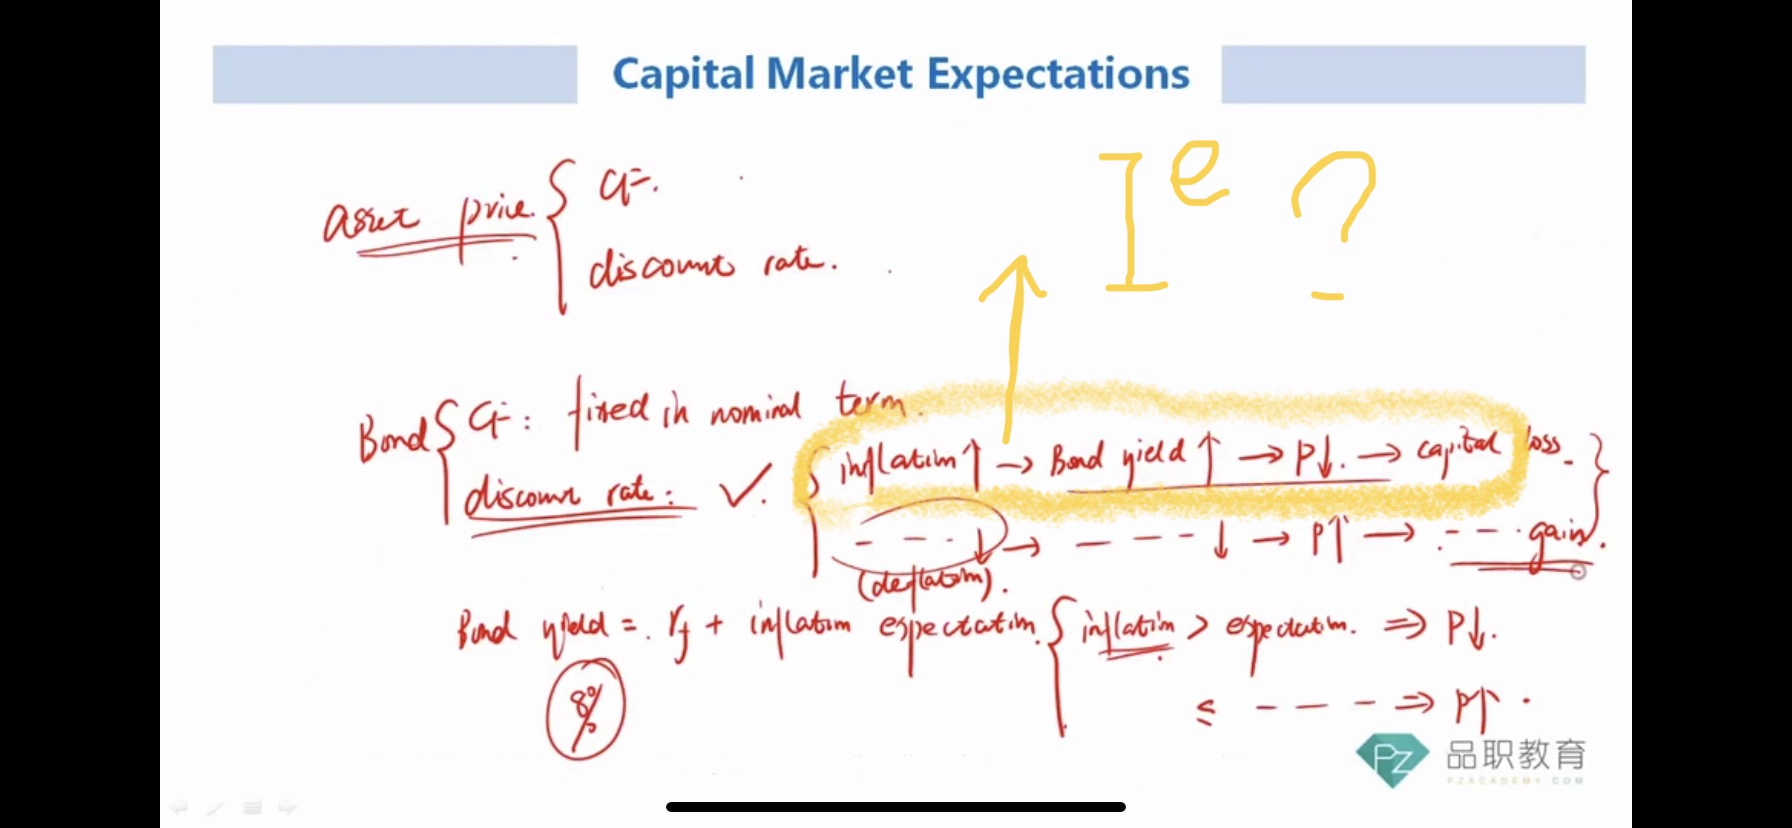 Capital Market Expectations
I^e ?
asset price. { CF.
discount rate.
Bond { CF: fixed in nominal term.
discount rate: ✓. { inflation ↑ → Bond yield ↑ → P↓. → capital loss.
- - - ↓ → - - - - ↓ → P↑ → - - - gain.
(deflation).
Bond yield = rf + inflation expectation. { inflation > expectation. ⇒ P↓.
8%
≤ - - - ⇒ P↑.
Pz 品职教育
PZACADEMY.COM